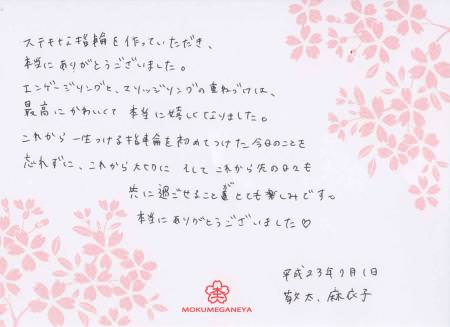 ステキな指輪を作っていただき、
本当にありがとうございました。
エンゲージリングと、マリッジリングの重ねづけは、
最高にかわいくて 本当に嬉しくなりました。
これから一生つける指輪を初めてつけた今日のことを
忘れずに、これから大切に そして これから先の日々も
共に過ごせること とても楽しみです。
本当にありがとうございました♡
平成23年7月1日
敬太、麻衣子
MOKUMEGANEYA